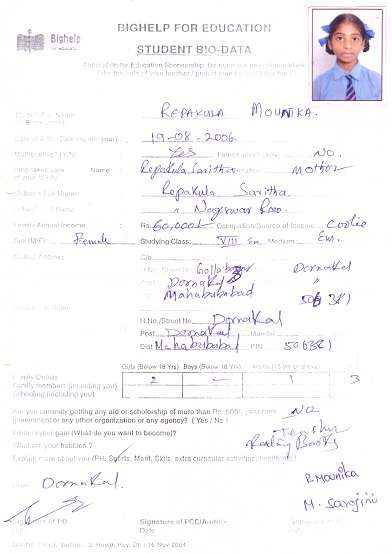 Bighelp
for education
BIGHELP FOR EDUCATION
STUDENT BIO-DATA
Application for Education Sponsorship. Do not leave
Take the help of your teacher / project
Student Full Name REPAKULA MOUNIKA.
Date of Birth (Date-month-year) : 19-08-2006.
Mother alive? (Y/N) : Yes Father alive? (Y/N) No.
Who takes care of your family? Name : Repakula Saritha Relation Mother
Mother's Full Name Repakula Saritha.
Father's Full Name " Nageswar Rao.
Family Annual Income : Rs. 60,000/- Occupation/Source of Income coolie
Sex (M/F) : Female Studying Class: VIII Em Medium : Em.
C/o
H.No./Street No. Gollabazar Dornakal
Dornakal "
Mahabubabad 506381
H.No./Street No. Dornakal
Post Dornakal, Mandal
Dist Mahabubabad PIN 506381
Girls (Below 18 Yrs) Boys (Below 18 Yrs) Adults (18 yrs or above)
Family Details
Family members (including you) 2 — 1 3
Schooling (including you)
Are you currently getting any aid or scholarship of more than Rs. 500/- year from No
government or any other organization or any agency? ( Yes / No )
What is your goal (What do you want to become)? Teacher
What are your hobbies ? Reading Books
Explain more about you (PH, Sports, Merit, Skills, extra curricular activities, health etc.)
Dornakal.
R. Mounika
M. Sarojini
Signature of PD Signature of PDC/Auditor
Date: Date: Date:
16 Nov 2004